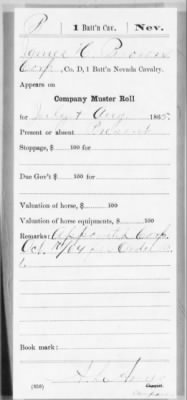 P | 1 Batt'n Cav. | Nev.
James H. 
Corp., Co. D, 1 Batt'n Nevada Cavalry.
Appears on
Company Muster Roll
for July & Aug, 1865.
Present or absent Present
Stoppage, $ 100 for
Due Gov't $ 100 for
Valuation of horse, $ 100
Valuation of horse equipments, $ 100
Remarks: Appointed Corp.
Oct.
Book mark:
(358)
Copyist.